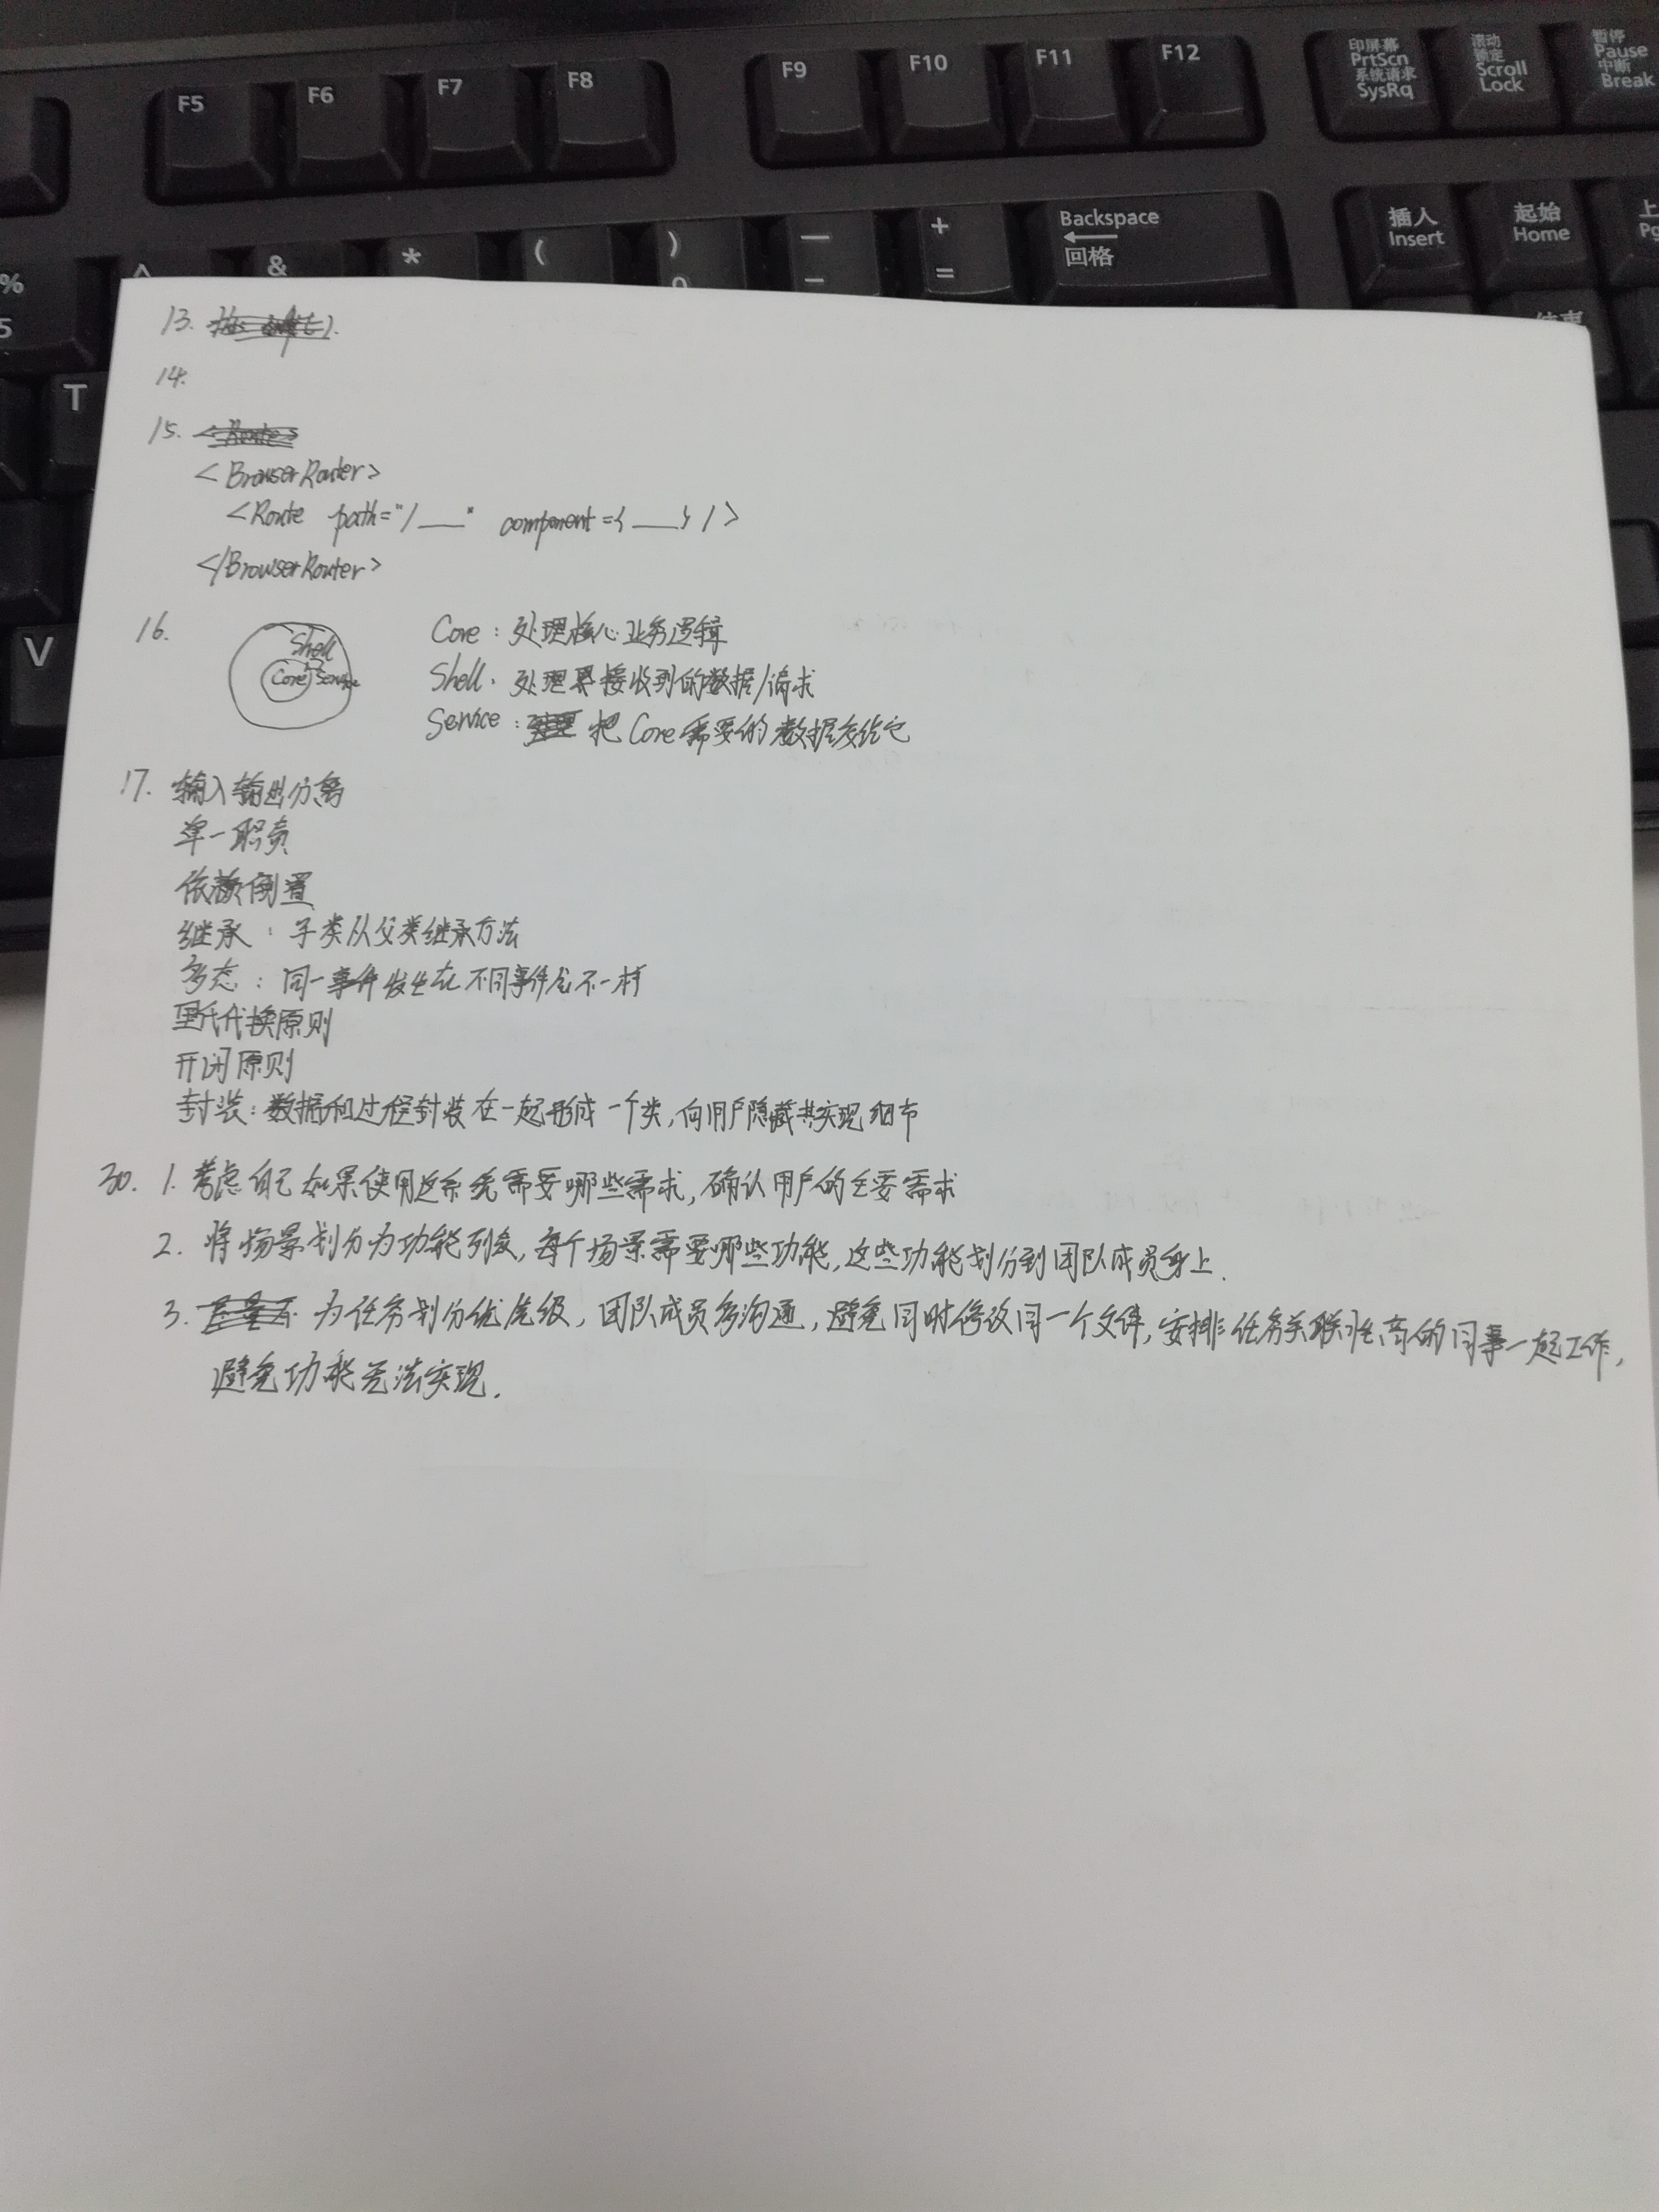 F5 F6 F7 F8 F9 F10 F11 F12 印屏幕 PrtScn 系统请求 SysRq 滚动 锁定 Scroll Lock 暂停 Pause 中断 Break
% 5 ^ & * ( ) — - + = Backspace 回格 插入 Insert 起始 Home 上 Pg
T
V
13.
14.
15.
<BrowserRouter>
<Route path="/___" component={___} />
</BrowserRouter>
16. Shell Core Service
Core：处理核心业务逻辑
Shell：处理界接收到的数据/请求
Service：把Core需要的数据交给它
17. 输入输出分离
单一职责
依赖倒置
继承：子类从父类继承方法
多态：同一事件发生在不同事件会不一样
里氏代换原则
开闭原则
封装：数据和过程封装在一起形成一个类，向用户隐藏其实现细节
30. 1. 考虑自己如果使用这系统需要哪些需求，确认用户的主要需求
2. 将场景划分为功能列表，每个场景需要哪些功能，这些功能划分到团队成员身上.
3. 为任务划分优先级，团队成员多沟通，避免同时修改同一个文件，安排任务关联性高的同事一起工作，
避免功能无法实现.